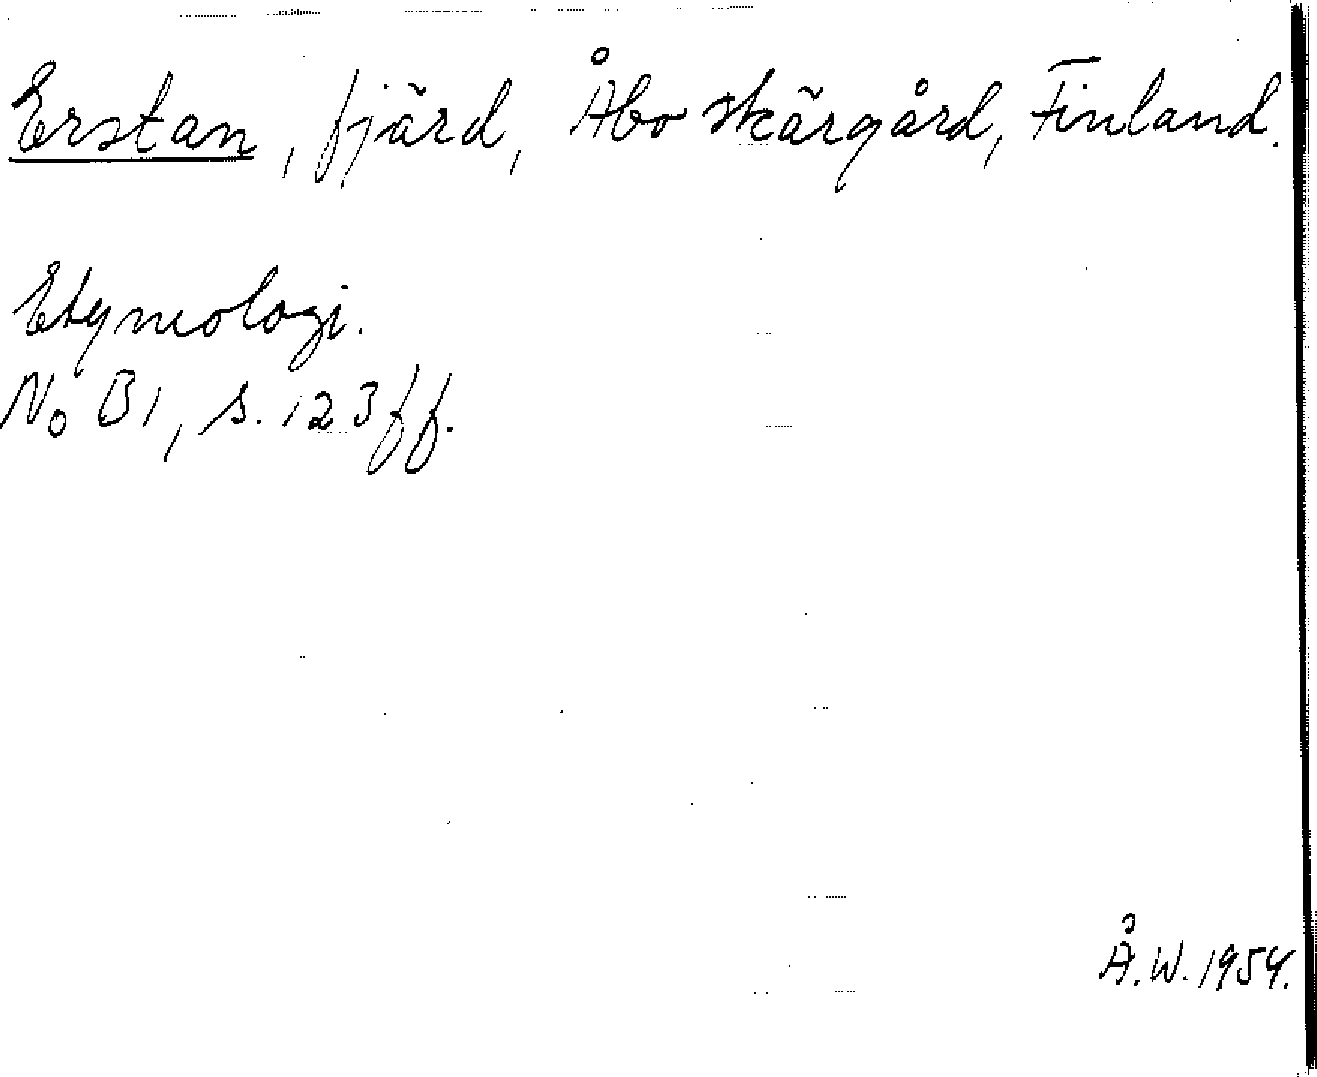 Erstan, fjärd, Åbo skärgård, Finland.
Etymologi.
No B1, s. 123 ff.
Å.W. 1954.